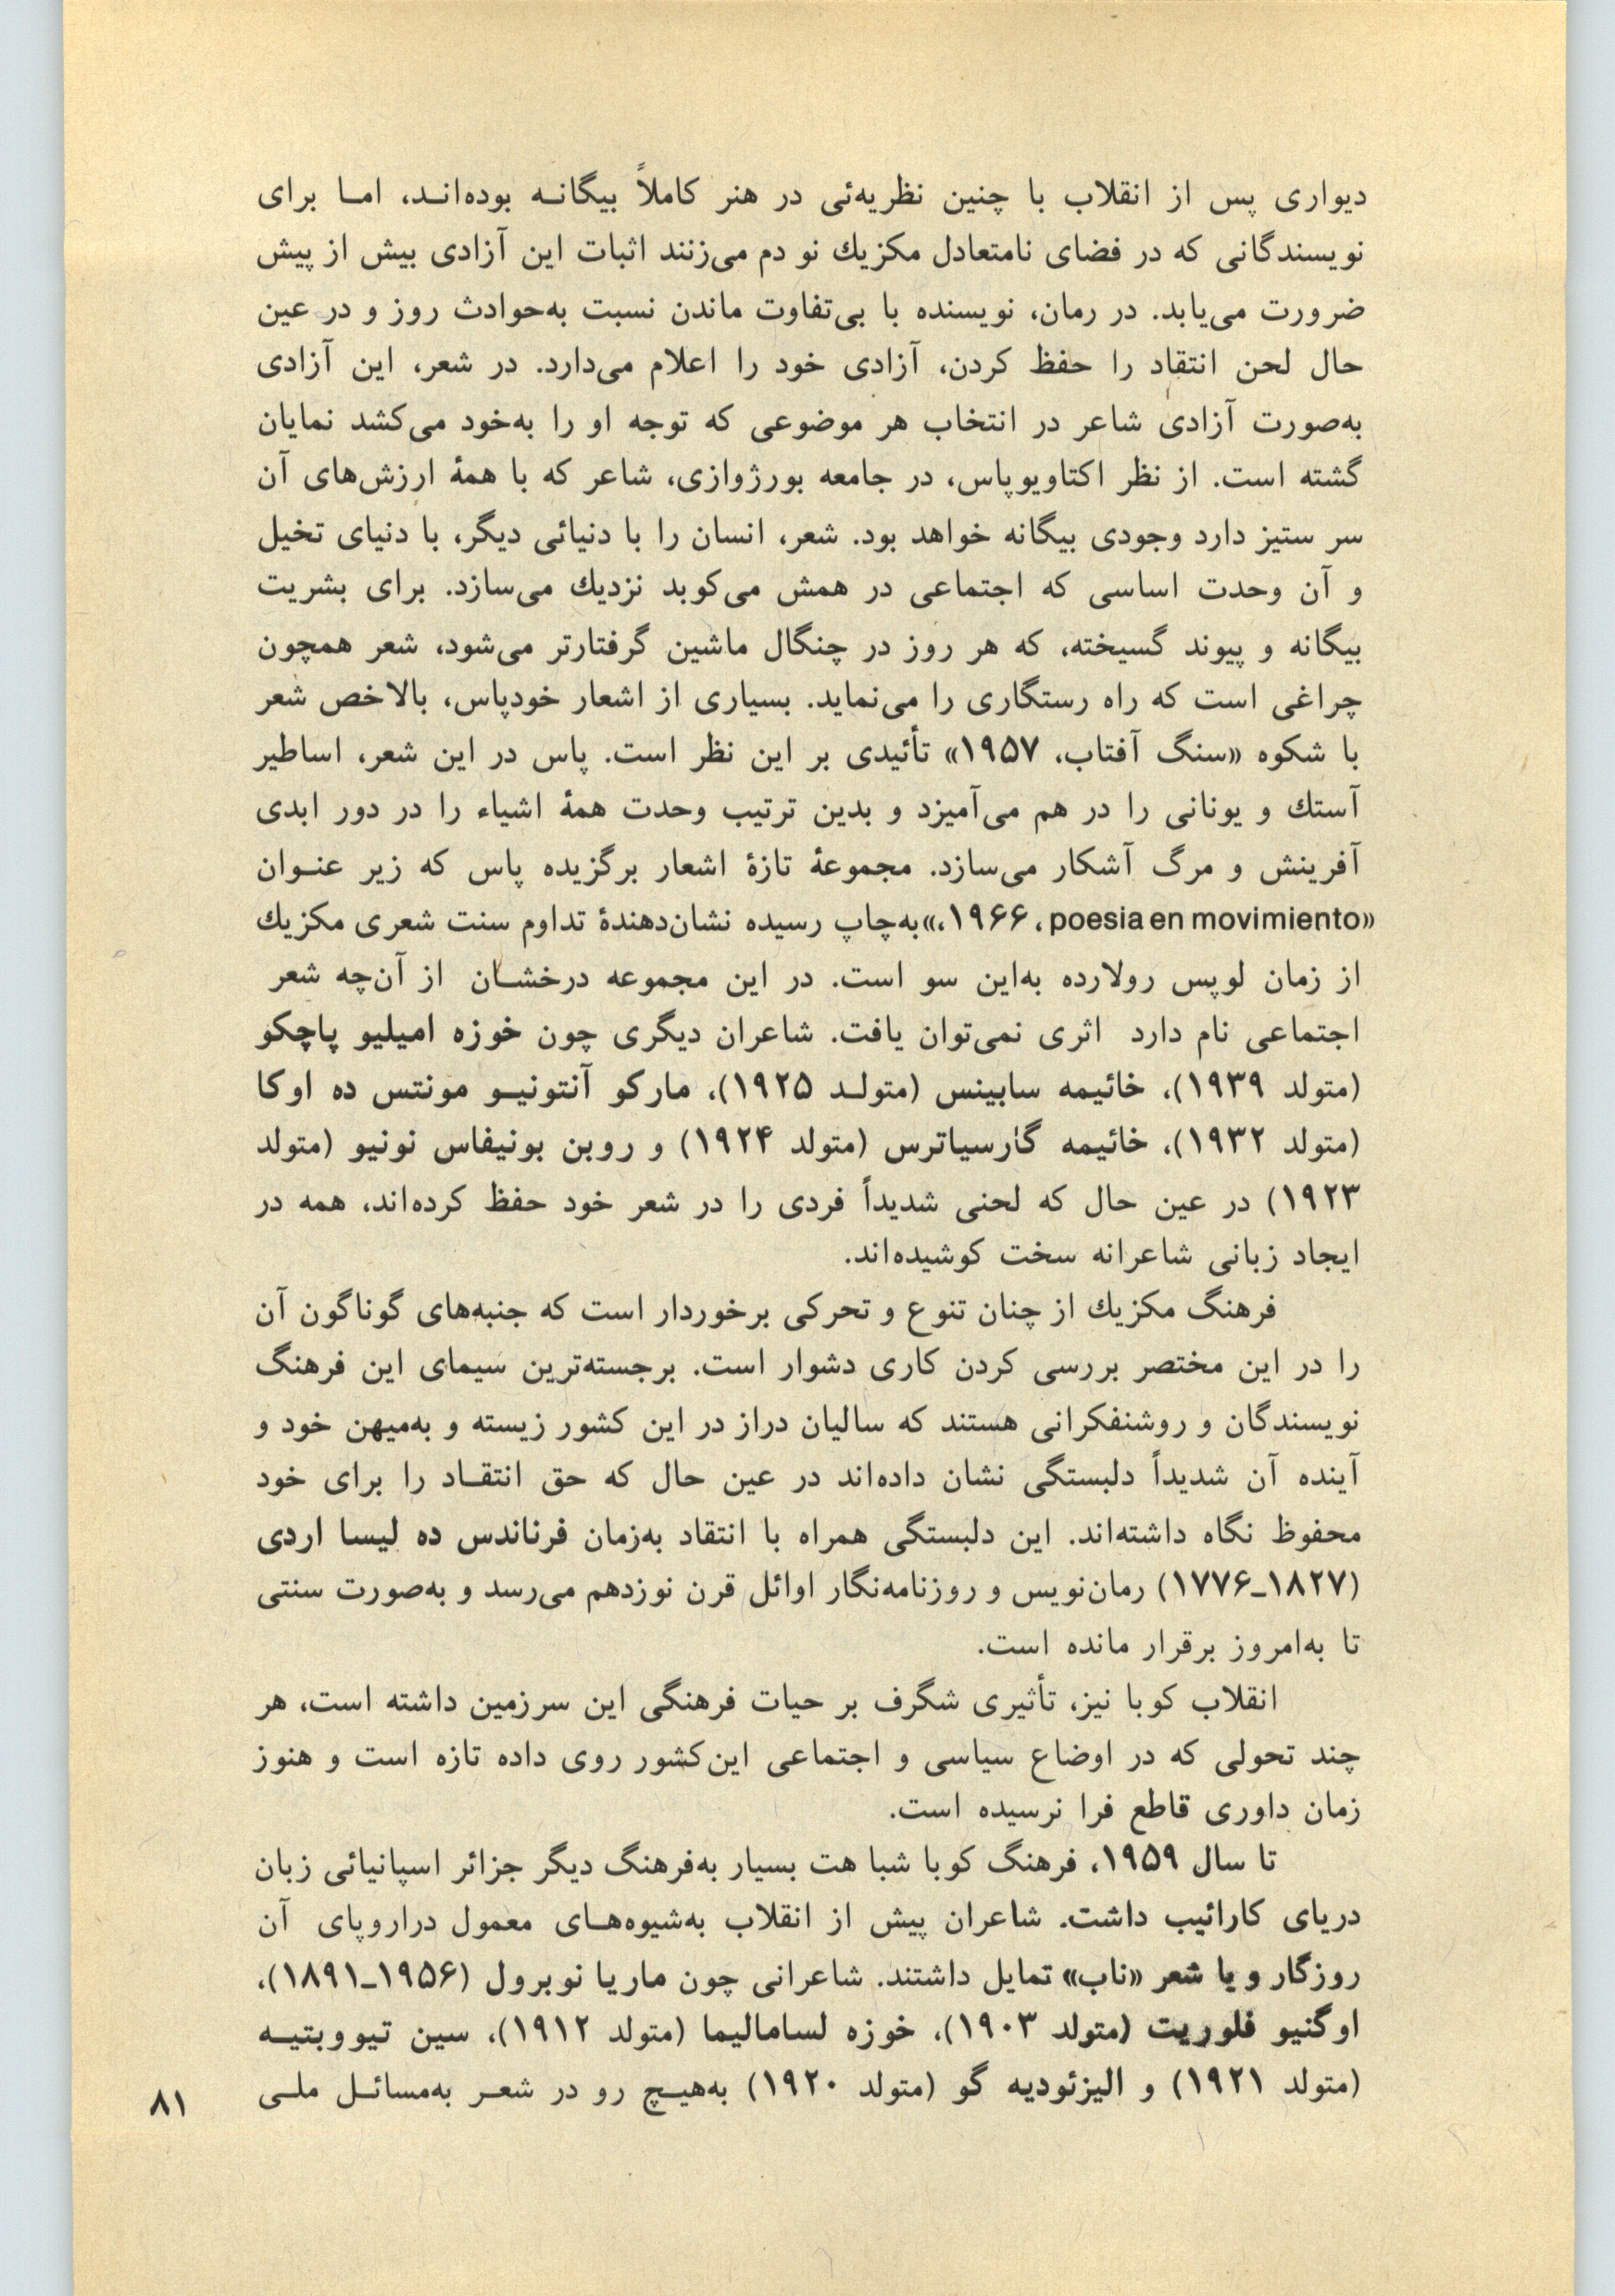 دیواری پس از انقلاب با چنین نظریه‌ئی در هنر کاملاً بیگانـه بوده‌انـد، امـا برای
نویسندگانی که در فضای نامتعادل مکزیك نو دم می‌زنند اثبات این آزادی بیش از پیش
ضرورت می‌یابد. در رمان، نویسنده با بی‌تفاوت ماندن نسبت به‌حوادث روز و در عین
حال لحن انتقاد را حفظ کردن، آزادی خود را اعلام می‌دارد. در شعر، این آزادی
به‌صورت آزادی شاعر در انتخاب هر موضوعی که توجه او را به‌خود می‌کشد نمایان
گشته است. از نظر اکتاویوپاس، در جامعه بورژوازی، شاعر که با همهٔ ارزش‌های آن
سر ستیز دارد وجودی بیگانه خواهد بود. شعر، انسان را با دنیائی دیگر، با دنیای تخیل
و آن وحدت اساسی که اجتماعی در همش می‌کوبد نزدیك می‌سازد. برای بشریت
بیگانه و پیوند گسیخته، که هر روز در چنگال ماشین گرفتارتر می‌شود، شعر همچون
چراغی است که راه رستگاری را می‌نماید. بسیاری از اشعار خودپاس، بالاخص شعر
با شکوه «سنگ آفتاب، ۱۹۵۷» تأئیدی بر این نظر است. پاس در این شعر، اساطیر
آستك و یونانی را در هم می‌آمیزد و بدین ترتیب وحدت همهٔ اشیاء را در دور ابدی
آفرینش و مرگ آشکار می‌سازد. مجموعهٔ تازهٔ اشعار برگزیده پاس که زیر عنـوان
«poesia en movimiento، ۱۹۶۶،» به‌چاپ رسیده نشان‌دهندهٔ تداوم سنت شعری مکزیك
از زمان لوپس رولارده به‌این سو است. در این مجموعه درخشـان از آن‌چه شعر
اجتماعی نام دارد اثری نمی‌توان یافت. شاعران دیگری چون خوزه امیلیو پاچکو
(متولد ۱۹۳۹)، خائیمه سابینس (متولـد ۱۹۲۵)، مارکو آنتونیـو مونتس ده اوکا
(متولد ۱۹۳۲)، خائیمه گارسیاترس (متولد ۱۹۲۴) و روبن بونیفاس نونیو (متولد
۱۹۲۳) در عین حال که لحنی شدیداً فردی را در شعر خود حفظ کرده‌اند، همه در
ایجاد زبانی شاعرانه سخت کوشیده‌اند.
فرهنگ مکزیك از چنان تنوع و تحرکی برخوردار است که جنبه‌های گوناگون آن
را در این مختصر بررسی کردن کاری دشوار است. برجسته‌ترین سیمای این فرهنگ
نویسندگان و روشنفکرانی هستند که سالیان دراز در این کشور زیسته و به‌میهن خود و
آینده آن شدیداً دلبستگی نشان داده‌اند در عین حال که حق انتقـاد را برای خود
محفوظ نگاه داشته‌اند. این دلبستگی همراه با انتقاد به‌زمان فرناندس ده لیسا اردی
(۱۸۲۷ـ۱۷۷۶) رمان‌نویس و روزنامه‌نگار اوائل قرن نوزدهم می‌رسد و به‌صورت سنتی
تا به‌امروز برقرار مانده است.
انقلاب کوبا نیز، تأثیری شگرف بر حیات فرهنگی این سرزمین داشته است، هر
چند تحولی که در اوضاع سیاسی و اجتماعی این‌کشور روی داده تازه است و هنوز
زمان داوری قاطع فرا نرسیده است.
تا سال ۱۹۵۹، فرهنگ کوبا شباهت بسیار به‌فرهنگ دیگر جزائر اسپانیائی زبان
دریای کارائیب داشت. شاعران پیش از انقلاب به‌شیوه‌هـای معمول دراروپای آن
روزگار و یا شعر «ناب» تمایل داشتند. شاعرانی چون ماریا نوبرول (۱۹۵۶ـ۱۸۹۱)،
اوگنیو فلوریت (متولد ۱۹۰۳)، خوزه لسامالیما (متولد ۱۹۱۲)، سین تیوویتیـه
(متولد ۱۹۲۱) و الیزئودیه گو (متولد ۱۹۲۰) به‌هیـچ رو در شعـر به‌مسائـل ملـی
۸۱